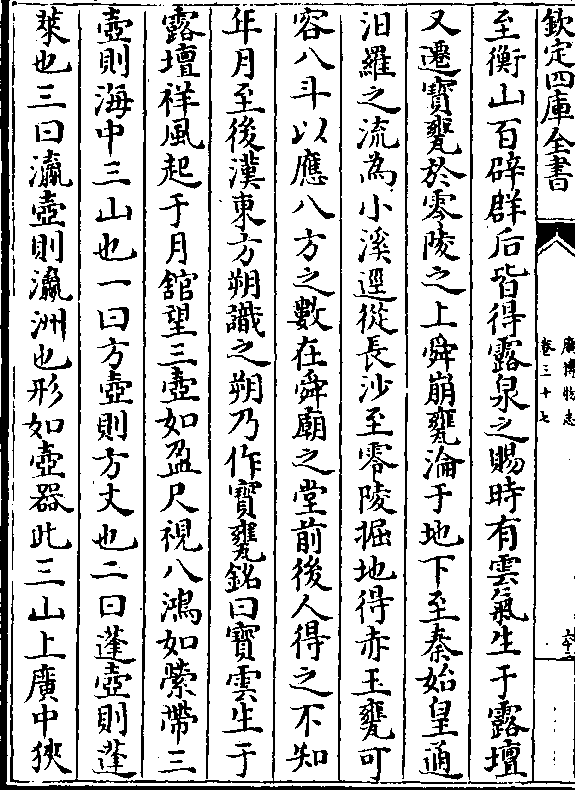 欽定四庫全書
廣博物志
卷三十七
至衡山百辟群后皆得露泉之賜時有雲氣生于露壇
又遷寶甕於零陵之上舜崩甕淪于地下至秦始皇通
汨羅之流為小溪逕從長沙至零陵掘地得赤玉甕可
容八斗以應八方之數在舜廟之堂前後人得之不知
年月至後漢東方朔識之朔乃作寶甕銘曰寶雲生于
露壇祥風起于月館望三壺如盈尺視八鴻如縈帶三
壺則海中三山也一曰方壺則方丈也二曰蓬壺則蓬
萊也三曰瀛壺則瀛洲也形如壺器此三山上廣中狹